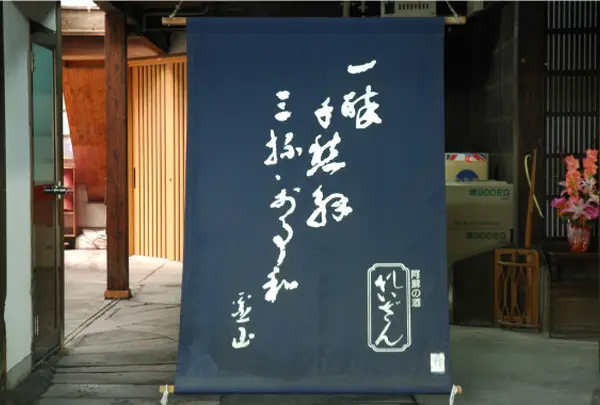 一酔千愁解
三杯万事和
霊山
阿蘇の酒
れいざん